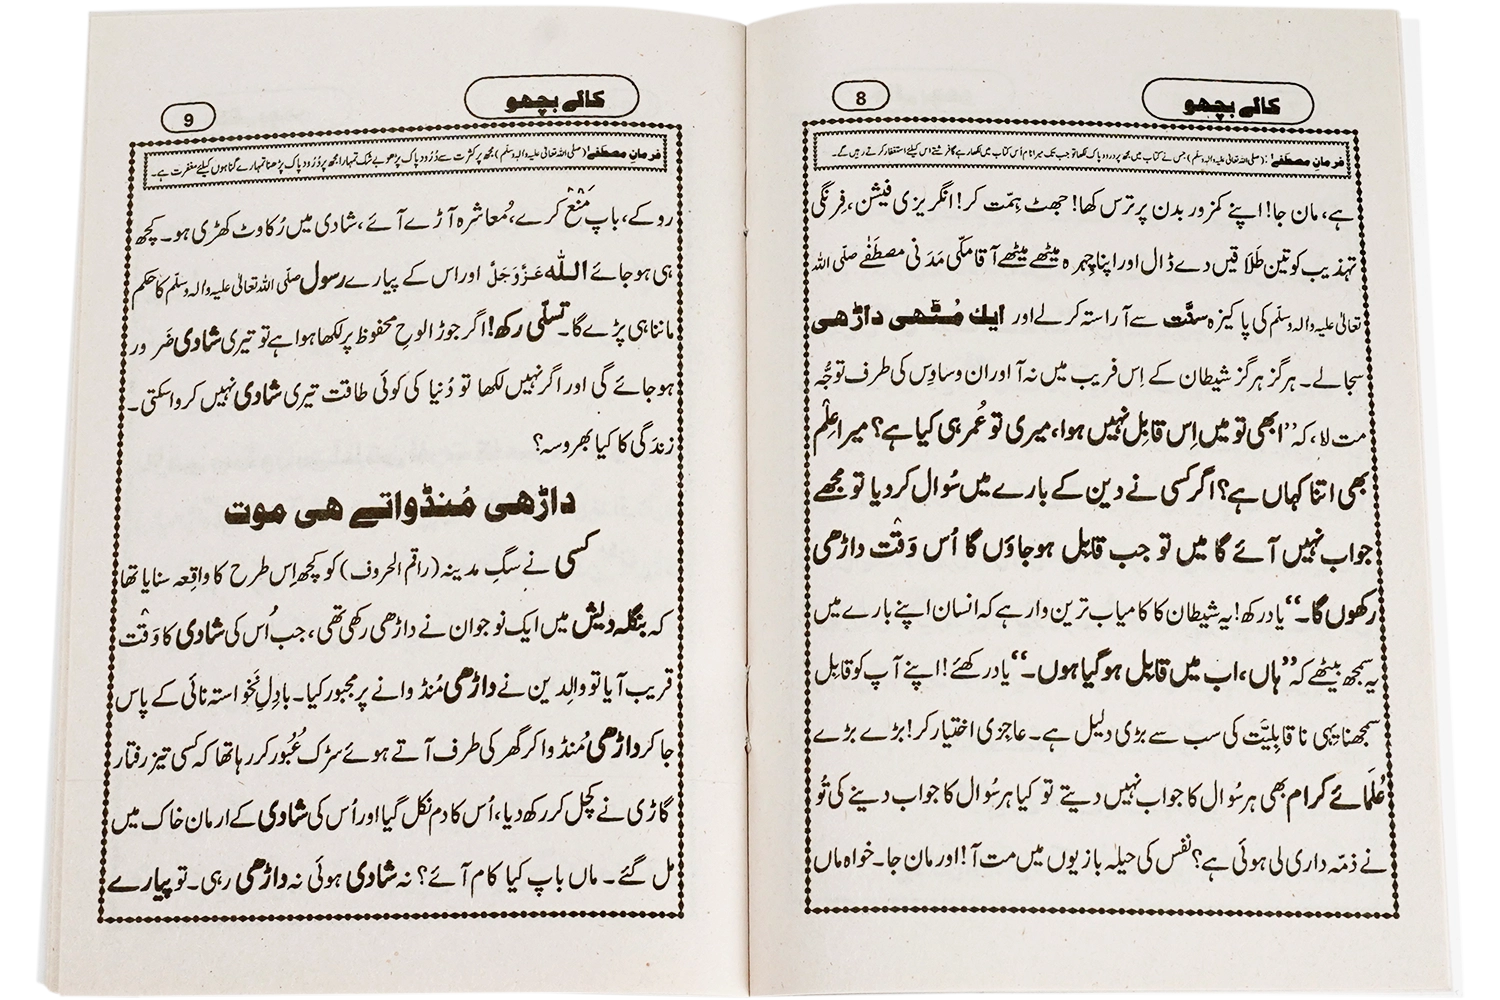 کالے بچھو
8
فرمانِ مصطفےٰ: (صلی اللہ تعالیٰ علیہ والہٖ وسلّم) جس نے کتاب میں مجھ پر درود پاک لکھا تو جب تک میرا نام اُس کتاب میں لکھا رہے گا فرشتے اس کیلئے استغفار کرتے رہیں گے۔
ہے، مان جا! اپنے کمزور بدن پر ترس کھا! جھٹ ہِمّت کر! انگریزی فیشن، فِرنگی
تہذیب کو تین طَلاقیں دے ڈال اور اپنا چِہرہ میٹھے میٹھے آقا مکّی مَدَنی مصطَفٰے صلّی اللہ
تعالیٰ علیہ والہٖ وسلّم کی پاکیزہ سنّت سے آراستہ کر لے اور ایک مُٹھی داڑھی
سجا لے۔ ہرگز ہرگز شیطان کے اِس فریب میں نہ آ اور ان وساوِس کی طرف توجُّہ
مت لا، کہ ”ابھی تو میں اِس قابِل نہیں ہوا، میری تو عُمر ہی کیا ہے؟ میرا عِلْم
بھی اتنا کہاں ہے؟ اگر کسی نے دین کے بارے میں سُوال کر دیا تو مجھے
جواب نہیں آئے گا میں تو جب قابِل ہو جاؤں گا اُس وَقْت داڑھی
رکھوں گا۔“ یاد رکھ! یہ شیطان کا کامیاب ترین وار ہے کہ انسان اپنے بارے میں
یہ سمجھ بیٹھے کہ ”ہاں، اب میں قابِل ہو گیا ہوں۔“ یاد رکھئے! اپنے آپ کو قابِل
سمجھنا یِہی نا قابِلیَّت کی سب سے بڑی دلیل ہے۔ عاجزی اختیار کر! بڑے بڑے
عُلَمائے کرام بھی ہر سُوال کا جواب نہیں دیتے تو کیا ہر سُوال کا جواب دینے کی تُو
نے ذمّہ داری لی ہوئی ہے؟ نفس کی حیلہ بازیوں میں مت آ! اور مان جا۔ خواہ ماں
کالے بچھو
9
فرمانِ مصطفےٰ: (صلی اللہ تعالیٰ علیہ والہٖ وسلّم) مجھ پر کثرت سے دُرُود پاک پڑھو بے شک تمہارا مجھ پر دُرُود پاک پڑھنا تمہارے گناہوں کیلئے مغفرت ہے۔
روکے، باپ مَنْع کرے، مُعاشرہ آڑے آئے، شادی میں رُکاوٹ کھڑی ہو۔ کچھ
ہی ہو جائے اللّٰہ عَزَّوَجَلَّ اور اس کے پیارے رسول صلّی اللہ تعالیٰ علیہ والہٖ وسلّم کا حکم
ماننا ہی پڑے گا۔ تسلّی رکھ! اگر جوڑا لوحِ محفوظ پر لکھا ہوا ہے تو تیری شادی ضَرور
ہو جائے گی اور اگر نہیں لکھا تو دُنیا کی کوئی طاقت تیری شادی نہیں کروا سکتی۔
زندَگی کا کیا بھروسہ؟
داڑھی مُنڈواتے ھی موت
کسی نے سگِ مدینہ (راقم الحروف) کو کچھ اِس طرح کا واقِعہ سنایا تھا
کہ بنگلہ دیش میں ایک نوجوان نے داڑھی رکھی تھی، جب اُس کی شادی کا وَقْت
قریب آیا تو والِدین نے داڑھی مُنڈوانے پر مجبور کیا۔ بادِلِ نَخْواستہ نائی کے پاس
جا کر داڑھی مُنڈوا کر گھر کی طرف آتے ہوئے سڑک عُبُور کر رہا تھا کہ کسی تیز رفتار
گاڑی نے کچل کر رکھ دیا، اُس کا دم نکل گیا اور اُس کی شادی کے ارمان خاک میں
مل گئے۔ ماں باپ کیا کام آئے؟ نہ شادی ہوئی نہ داڑھی رہی۔ تو پیارے